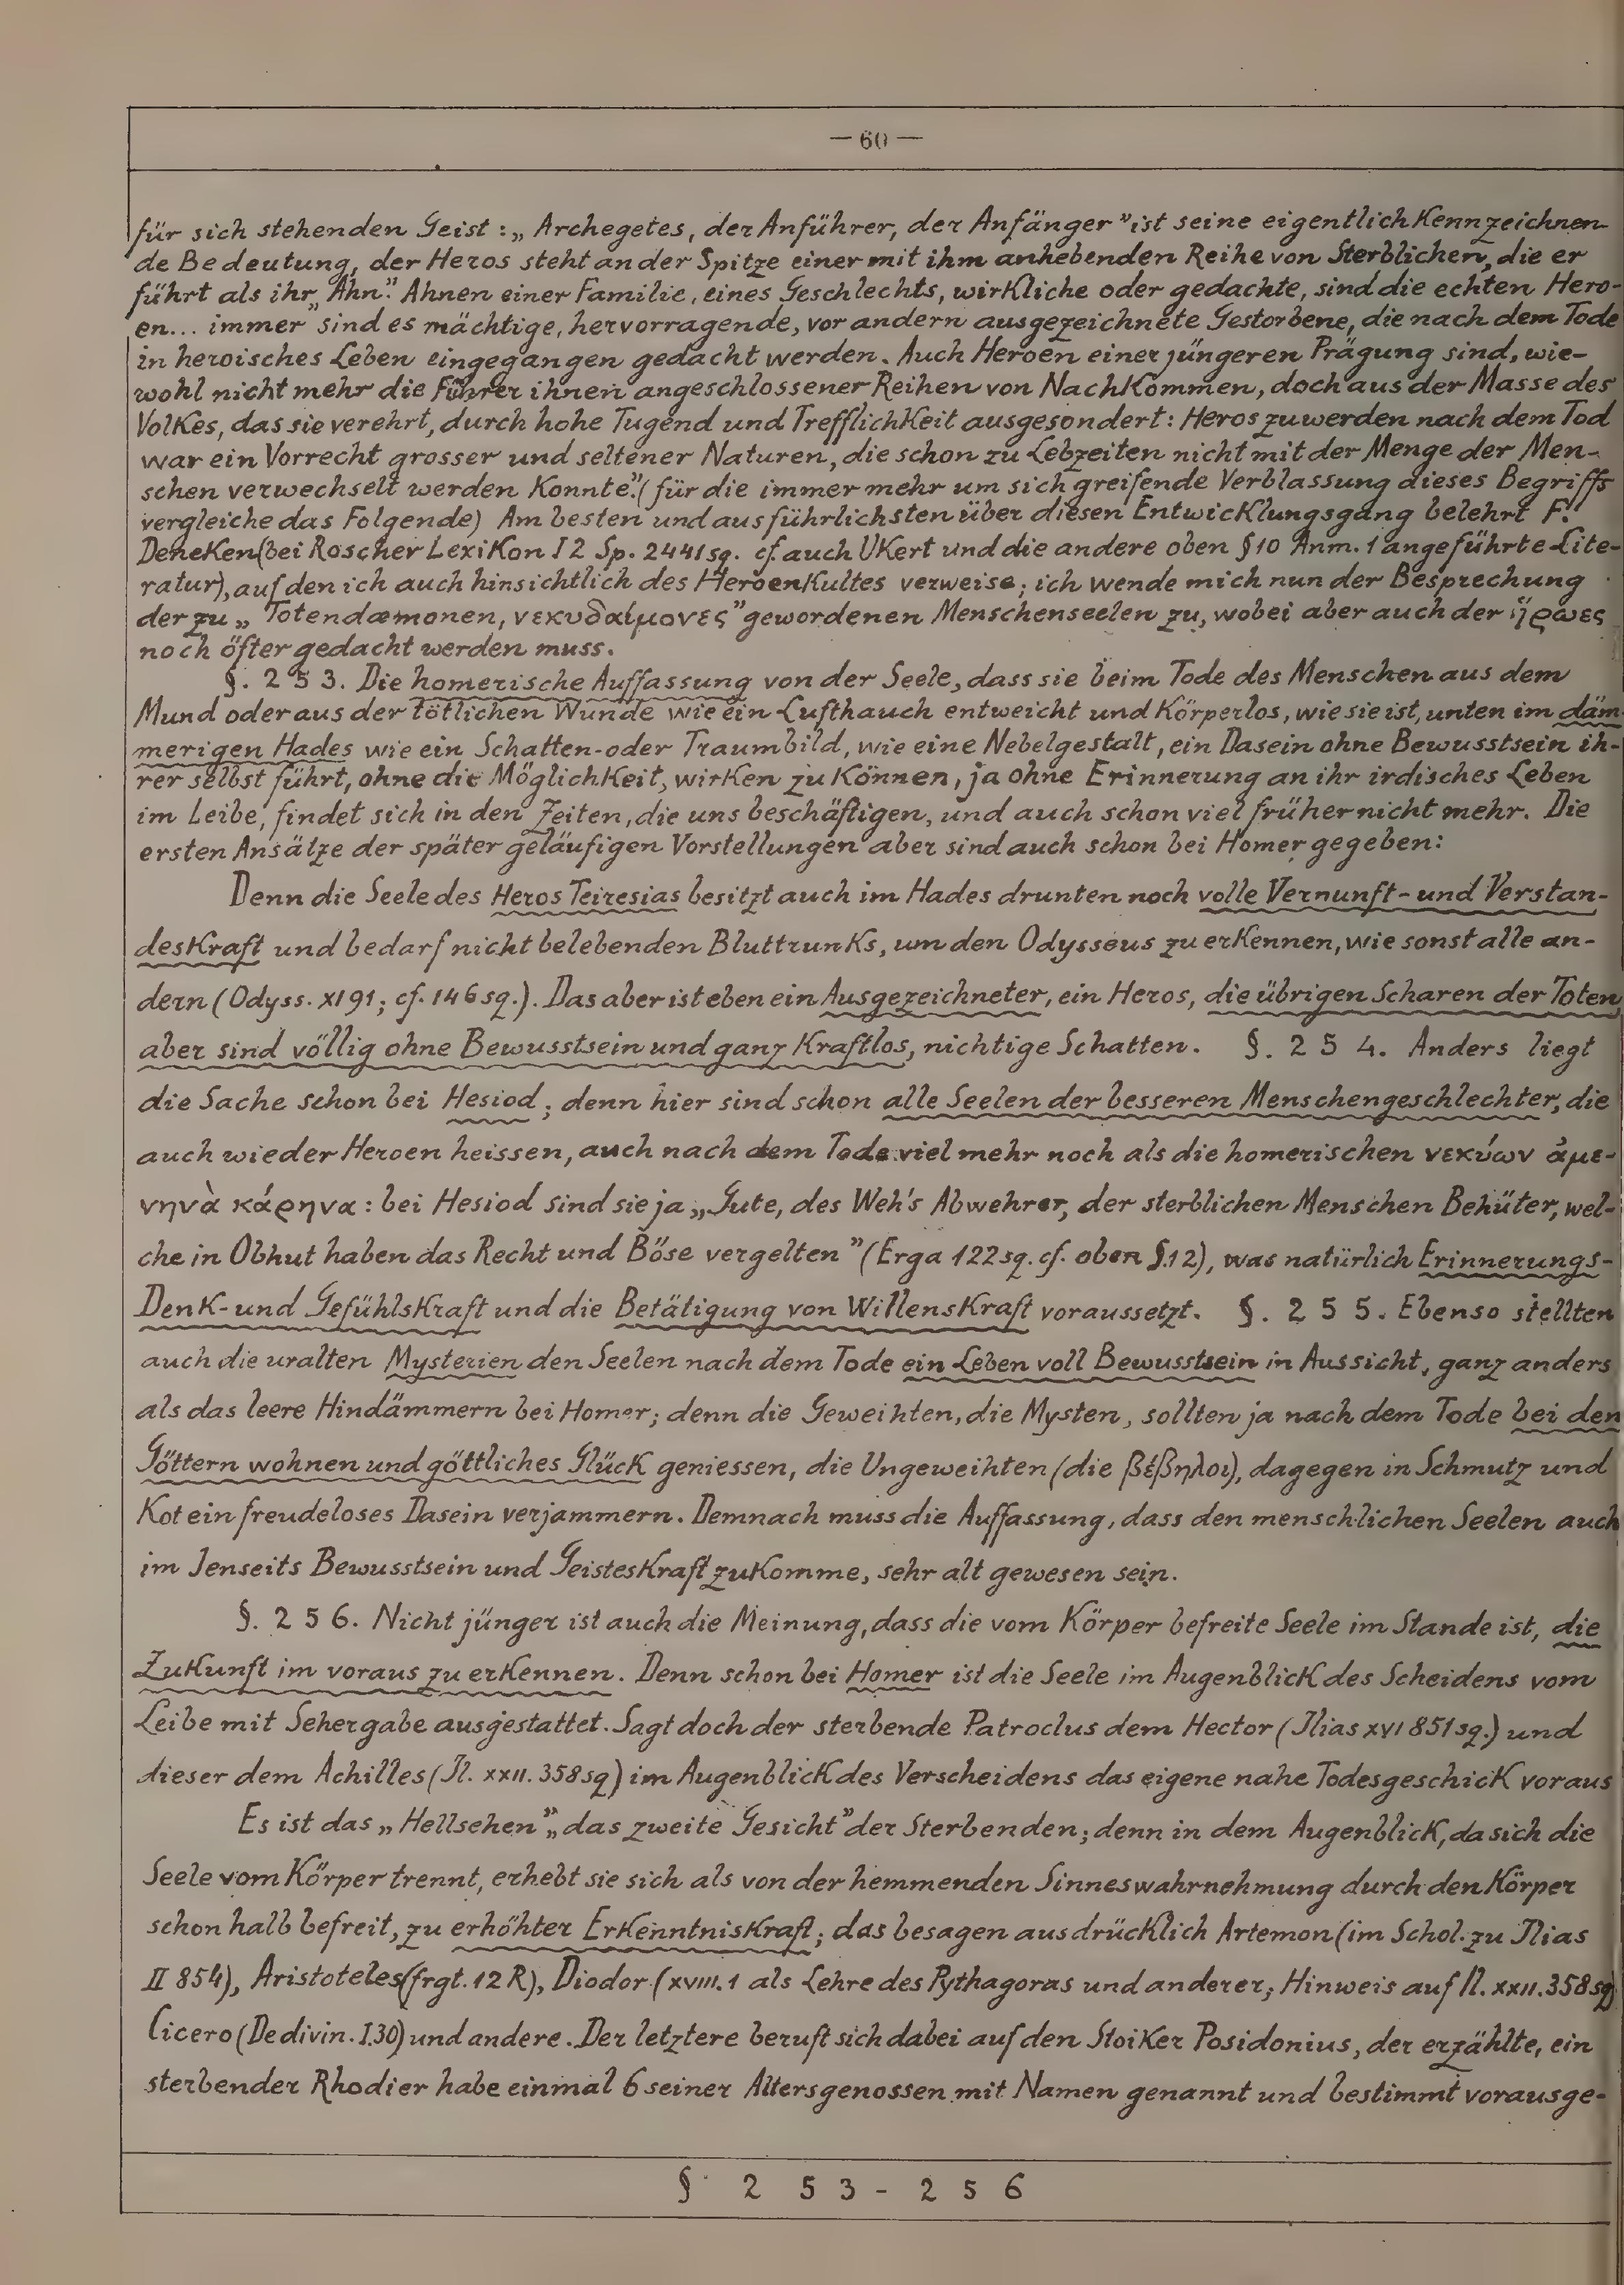 — 60 —
für sich stehenden Geist : „ Archegetes, der Anführer, der Anfänger ” ist seine eigentlich Kennzeichnen-
de Bedeutung, der Heros steht an der Spitze einer mit ihm anhebenden Reihe von Sterblichen, die er
führt als ihr „ Ahn.” Ahnen einer Familie, eines Geschlechts, wirkliche oder gedachte, sind die echten Hero-
en... immer sind es mächtige, hervorragende, vor andern ausgezeichnete Gestorbene, die nach dem Tode
in heroisches Leben eingegangen gedacht werden. Auch Heroen einer jüngeren Prägung sind, wie-
wohl nicht mehr die Führer ihnen angeschlossener Reihen von Nachkommen, doch aus der Masse des
Volkes, das sie verehrt, durch hohe Tugend und Trefflichkeit ausgesondert : Heros zu werden nach dem Tod
war ein Vorrecht grosser und seltener Naturen, die schon zu Lebzeiten nicht mit der Menge der Men-
schen verwechselt werden konnte.” ( für die immer mehr um sich greifende Verblassung dieses Begriffs
vergleiche das Folgende) Am besten und ausführlichsten über diesen Entwicklungsgang belehrt F.
Deneken (bei Roscher Lexikon I 2 Sp. 2441 sq. cf. auch Ukert und die andere oben § 10 Anm. 1 angeführte Lite-
ratur), auf den ich auch hinsichtlich des Heroenkultes verweise ; ich wende mich nun der Besprechung
der zu „ Totendæmonen, νεκυδαίμονες ” gewordenen Menschenseelen zu, wobei aber auch der ἥρωες
noch öfter gedacht werden muss.
§. 2 5 3. Die homerische Auffassung von der Seele, dass sie beim Tode des Menschen aus dem
Mund oder aus der tötlichen Wunde wie ein Lufthauch entweicht und körperlos, wie sie ist, unten im däm-
merigen Hades wie ein Schatten- oder Traumbild, wie eine Nebelgestalt, ein Dasein ohne Bewusstsein ih-
rer selbst führt, ohne die Möglichkeit, wirken zu können, ja ohne Erinnerung an ihr irdisches Leben
im Leibe, findet sich in den Zeiten, die uns beschäftigen, und auch schon viel früher nicht mehr. Die
ersten Ansätze der später geläufigen Vorstellungen aber sind auch schon bei Homer gegeben :
Denn die Seele des Heros Teiresias besitzt auch im Hades drunten noch volle Vernunft- und Verstan-
deskraft und bedarf nicht belebenden Bluttrunks, um den Odysseus zu erkennen, wie sonst alle an-
dern ( Odyss. XI 91 ; cf. 146 sq. ). Das aber ist eben ein Ausgezeichneter, ein Heros, die übrigen Scharen der Toten
aber sind völlig ohne Bewusstsein und ganz kraftlos, nichtige Schatten. §. 2 5 4. Anders liegt
die Sache schon bei Hesiod ; denn hier sind schon alle Seelen der besseren Menschengeschlechter, die
auch wieder Heroen heissen, auch nach dem Tode viel mehr noch als die homerischen νεκύων ἀμε-
νηνὰ κάρηνα : bei Hesiod sind sie ja „ Gute, des Weh's Abwehrer, der sterblichen Menschen Behüter, wel-
che in Obhut haben das Recht und Böse vergelten ” ( Erga 122 sq. cf. oben §.12), was natürlich Erinnerungs-
Denk- und Gefühlskraft und die Betätigung von Willenskraft voraussetzt. §. 2 5 5. Ebenso stellten
auch die uralten Mysterien den Seelen nach dem Tode ein Leben voll Bewusstsein in Aussicht, ganz anders
als das leere Hindämmern bei Homer ; denn die Geweihten, die Mysten, sollten ja nach dem Tode bei den
Göttern wohnen und göttliches Glück geniessen, die Ungeweihten ( die βέβηλοι), dagegen in Schmutz und
Kot ein freudeloses Dasein verjammern. Demnach muss die Auffassung, dass den menschlichen Seelen auch
im Jenseits Bewusstsein und Geisteskraft zukomme, sehr alt gewesen sein.
§. 2 5 6. Nicht jünger ist auch die Meinung, dass die vom Körper befreite Seele im Stande ist, die
Zukunft im voraus zu erkennen. Denn schon bei Homer ist die Seele im Augenblick des Scheidens vom
Leibe mit Sehergabe ausgestattet. Sagt doch der sterbende Patroclus dem Hector ( Ilias XVI 851 sq.) und
dieser dem Achilles ( Il. XXII. 358 sq) im Augenblick des Verscheidens das eigene nahe Todesgeschick voraus
Es ist das „ Hellsehen ”, „ das zweite Gesicht ” der Sterbenden ; denn in dem Augenblick, da sich die
Seele vom Körper trennt, erhebt sie sich als von der hemmenden Sinneswahrnehmung durch den Körper
schon halb befreit, zu erhöhter Erkenntniskraft ; das besagen ausdrücklich Artemon ( im Schol. zu Ilias
II 854), Aristoteles (frgt. 12 R), Diodor ( XVIII. 1 als Lehre des Pythagoras und anderer ; Hinweis auf Il. XXII. 358 sq)
Cicero ( De divin. I.30) und andere. Der letztere beruft sich dabei auf den Stoiker Posidonius, der erzählte, ein
sterbender Rhodier habe einmal 6 seiner Altersgenossen mit Namen genannt und bestimmt vorausge-
§ 2 5 3 - 2 5 6